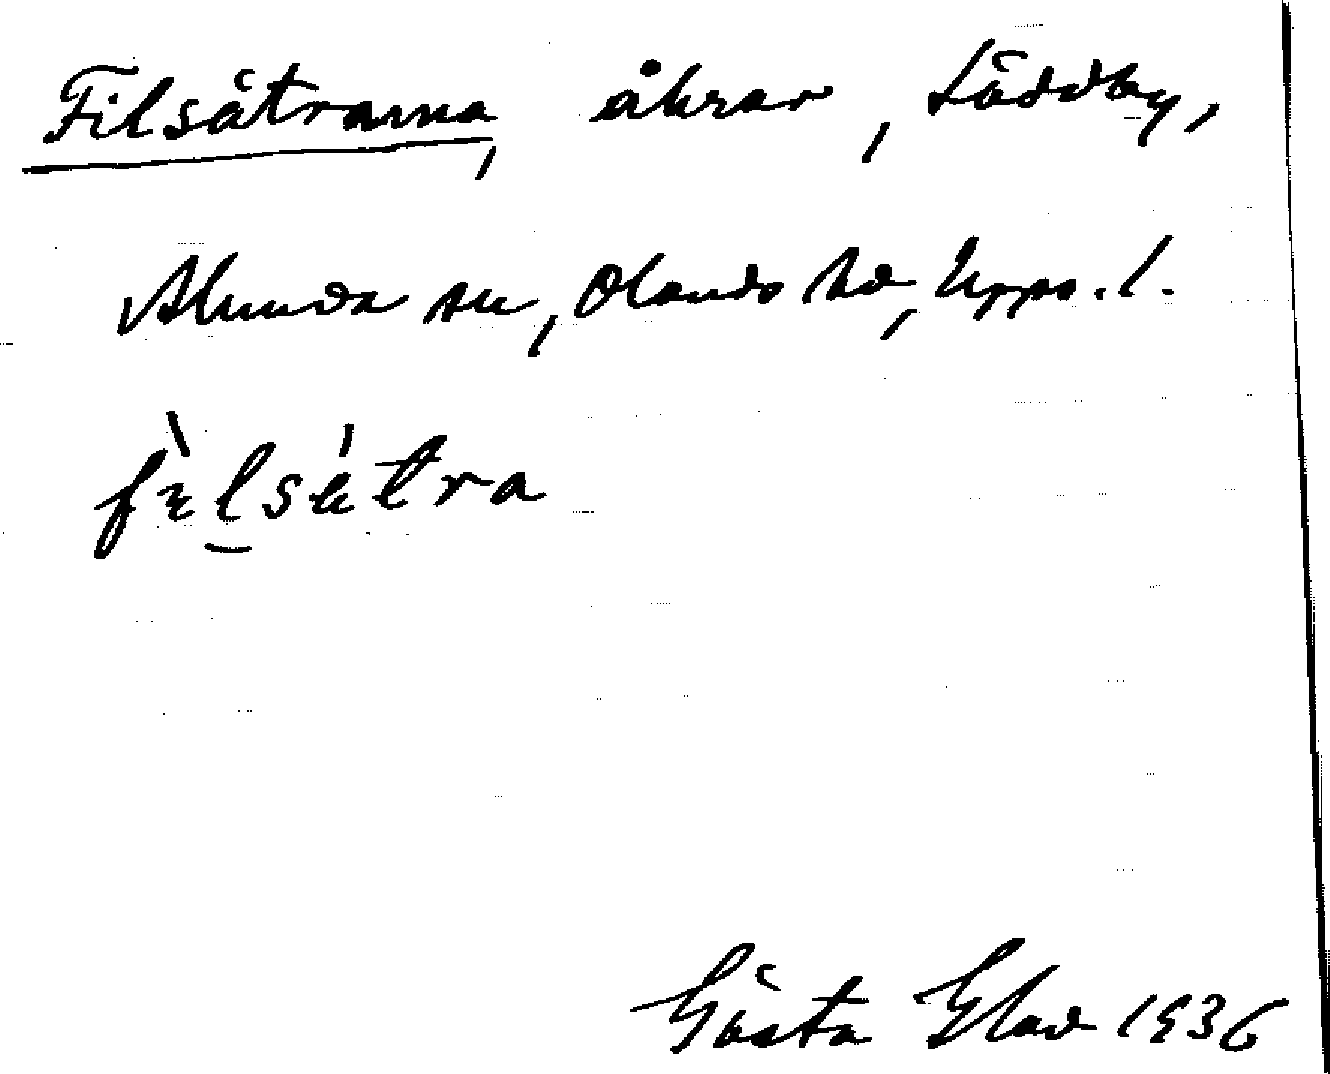 Filsätrarna, åkrar, Löddby,
Alunda sn, Olands hd, Upps. l.
fìlsátra
Gösta Elad 1936